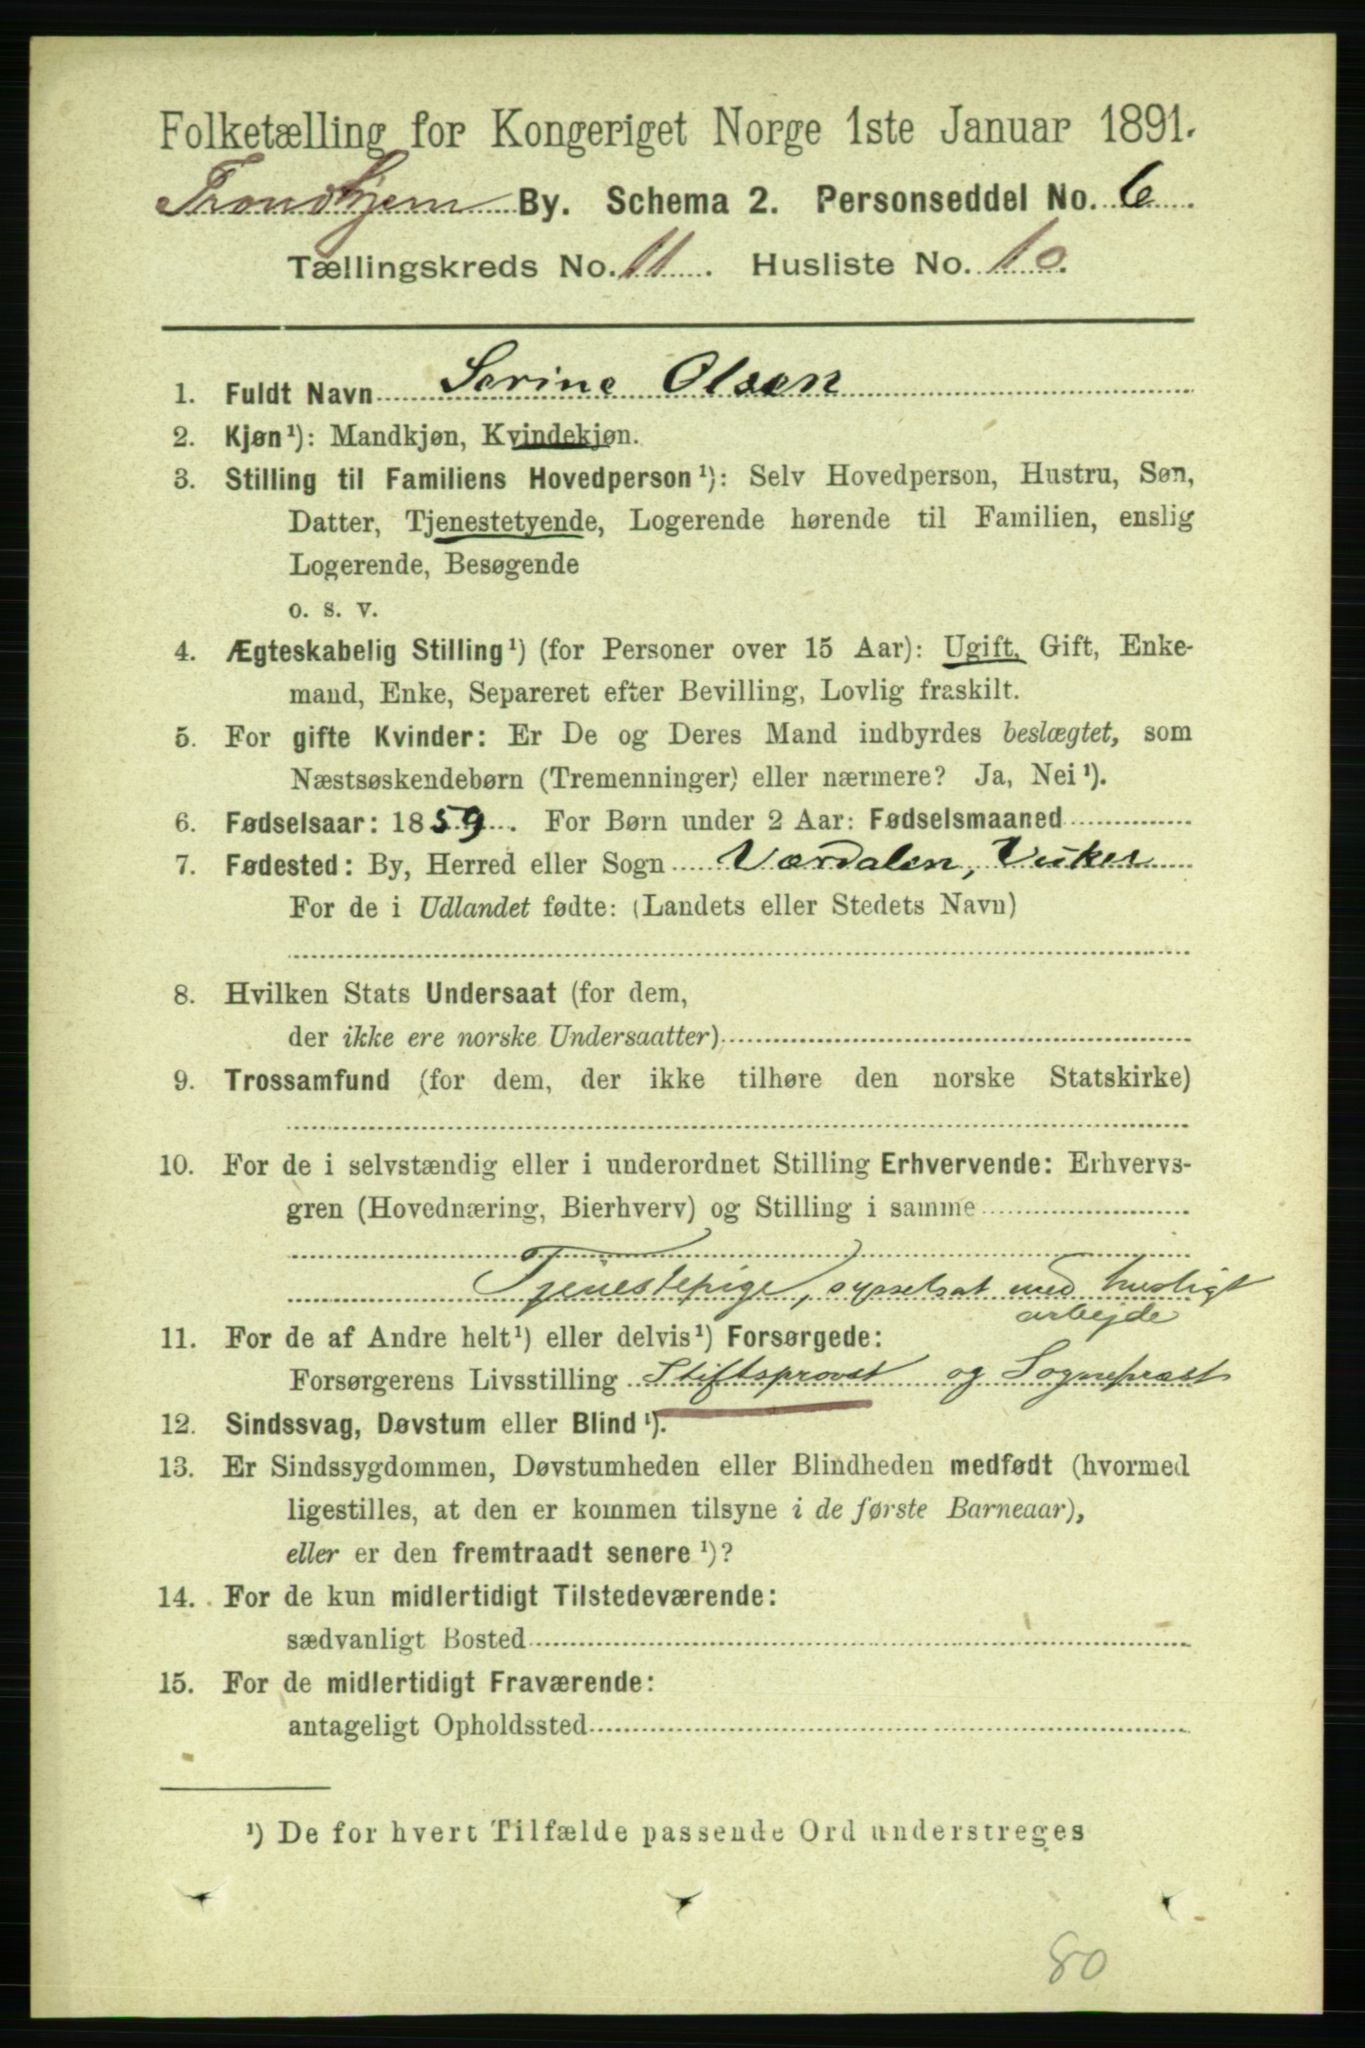 Folketælling for Kongeriget Norge 1ste Januar 1891.
Trondhjem By. Schema 2. Personseddel No. 6
Tællingskreds No. 11. Husliste No. 10.
1. Fuldt Navn Serine Olsen
2. Kjøn¹): Mandkjøn, Kvindekjøn.
3. Stilling til Familiens Hovedperson¹): Selv Hovedperson, Hustru, Søn,
Datter, Tjenestetyende, Logerende hørende til Familien, enslig
Logerende, Besøgende
o. s. v.
4. Ægteskabelig Stilling¹) (for Personer over 15 Aar): Ugift, Gift, Enke-
mand, Enke, Separeret efter Bevilling, Lovlig fraskilt.
5. For gifte Kvinder: Er De og Deres Mand indbyrdes beslægtet, som
Næstsøskendebørn (Tremenninger) eller nærmere? Ja, Nei¹).
6. Fødselsaar: 1859. For Børn under 2 Aar: Fødselsmaaned
7. Fødested: By, Herred eller Sogn Værdalen,
For de i Udlandet fødte: (Landets eller Stedets Navn)
8. Hvilken Stats Undersaat (for dem,
der ikke ere norske Undersaatter)
9. Trossamfund (for dem, der ikke tilhøre den norske Statskirke)
10. For de i selvstændig eller i underordnet Stilling Erhvervende: Erhvervs-
gren (Hovednæring, Bierhverv) og Stilling i samme
Tjenestepige, sysselsat med husligt
arbejde
11. For de af Andre helt¹) eller delvis¹) Forsørgede:
Forsørgerens Livsstilling Stiftsprovst og Sognepræst
12. Sindssvag, Døvstum eller Blind¹).
13. Er Sindssygdommen, Døvstumheden eller Blindheden medfødt (hvormed
ligestilles, at den er kommen tilsyne i de første Barneaar),
eller er den fremtraadt senere¹)?
14. For de kun midlertidigt Tilstedeværende:
sædvanligt Bosted
15. For de midlertidigt Fraværende:
antageligt Opholdssted
¹) De for hvert Tilfælde passende Ord understreges
80